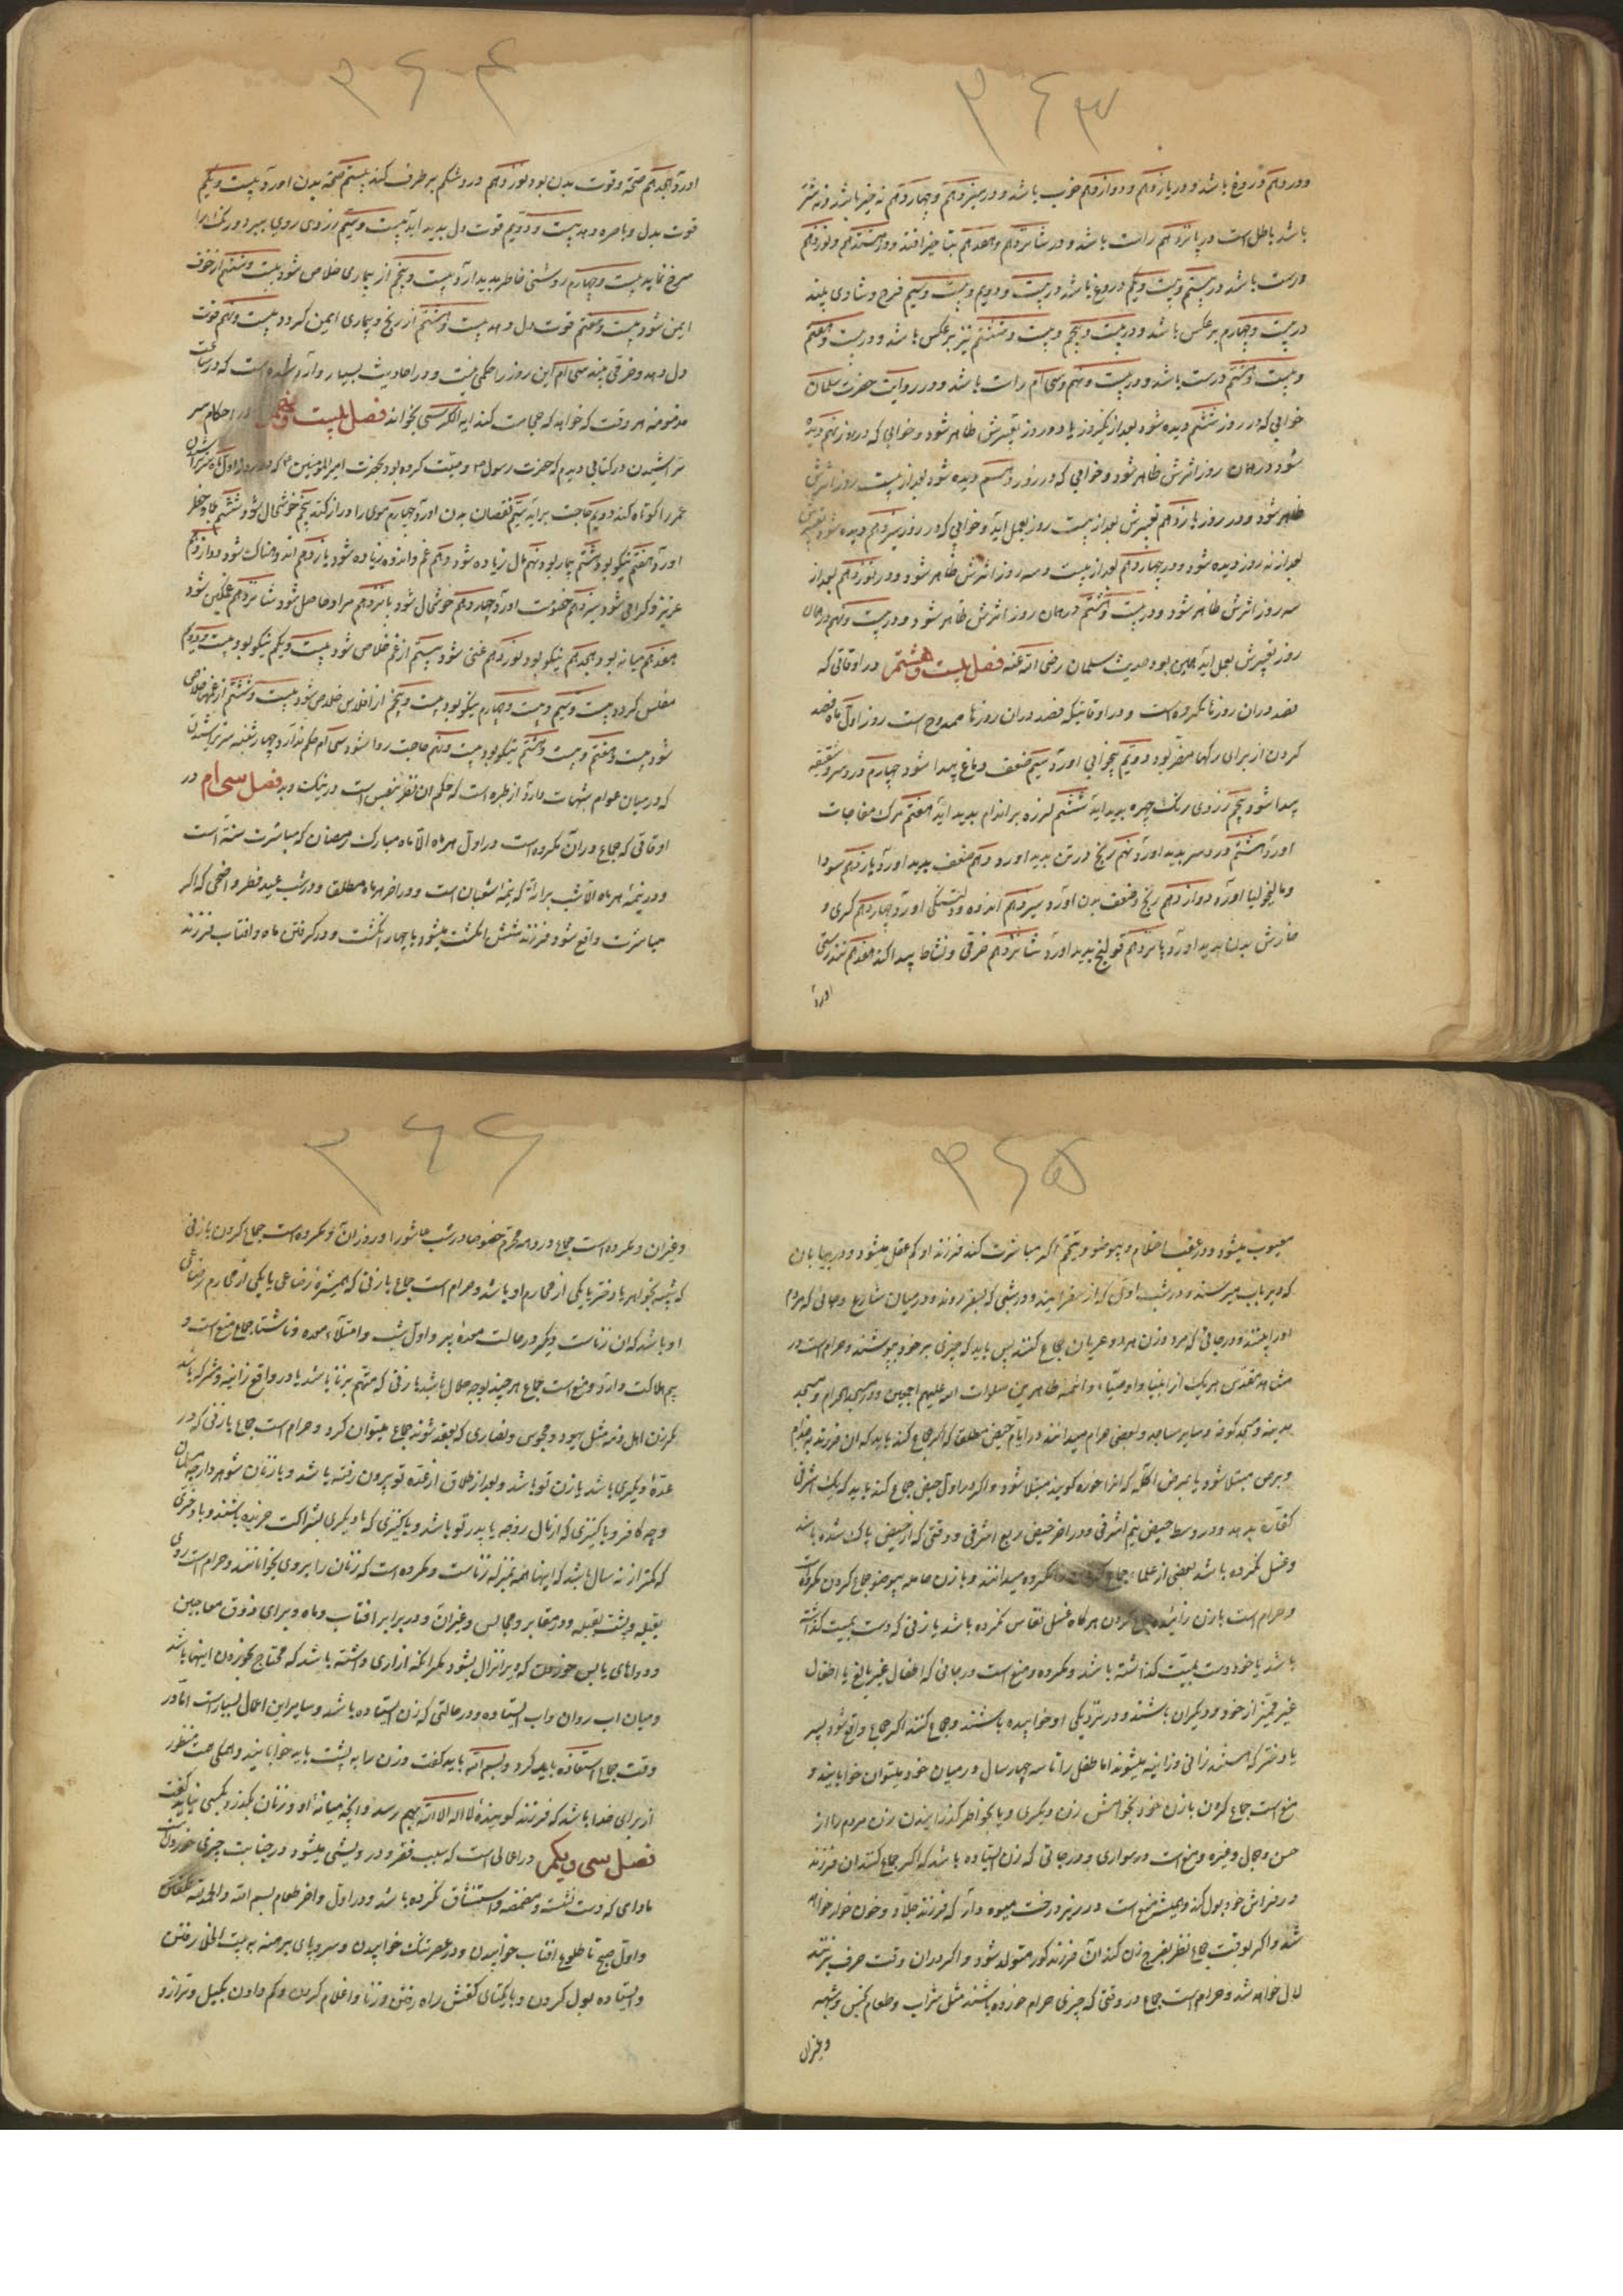 ۳۶۳
ودر دهم دروغ باشد ودر یازدهم ودوازدهم خوب باشد ودر سیزدهم وچهاردهم نه خیر باشد ونه شر
باشد باطل است در پانزدهم راست باشد ودر شانزدهم وهفدهم بتاخیر افتد ودر هشتدهم ونوزدهم
درست باشد در بیستم وبیست ویکم دروغ باشد در بیست ودویم وبیست وسیم فرح وشادی بیند
در بیست وچهارم برعکس باشد ودر بیست وپنجم وبیست وششم نیز برعکس باشد ودر بیست وهفتم
وبیست وهشتم درست باشد ودر بیست ونهم وسی ام راست باشد ودر روایت حضرت سلمان
خوابی که در روز ششم دیده شود بعد از یکروز یا دو روز تعبیرش ظاهر شود وخوابی که در روز نهم دیده
شود در همان روز اثرش ظاهر شود وخوابی که در روز دهم دیده شود بعد از بیست روز اثرش
ظاهر شود ودر روز یازدهم تعبیرش بعد از بیست روز بعمل آید وخوابی که در روز سیزدهم دیده شود تعبیرش
بعد از نه روز دیده شود ودر چهاردهم بعد از بیست وسه روز اثرش ظاهر شود ودر نوزدهم بعد از
سه روز اثرش ظاهر شود ودر بیست وهشتم در همان روز اثرش ظاهر شود ودر بیست ونهم در همان
روز تعبیرش بعمل آید همین بود حدیث سلمان رضی الله عنه فصل بیست وهشتم در اوقاتی که
فصد دران روزها مکروه است ودر اوقاتیکه فصد دران روزها ممدوح است روز اول ماه فصد
کردن از برای رکها مضر بود دویم بیخوابی اورد سیم ضعف دماغ پیدا شود چهارم درد سر وشقیقه
پیدا شود پنجم زردی رنک چهره پدید آید ششم لرزه بر اندام پدید آید هفتم مرک مفاجات
اورد هشتم درد سر پدید اورد نهم رنج در تن پدید اورد دهم ضعف پدید اورد یازدهم سودا
ومالیخولیا اورد دوازدهم رنج وضعف بدن اورد سیزدهم اندوه ودلتنکی اورد چهاردهم کری و
خارش بدن پدید اورد پانزدهم قولنج پدید اورد شانزدهم خرقی ونشاط پیدا کند هفدهم تندرستی
اورد
۳۶۴
اورد هجدهم صحة وقوت بدن بود نوزدهم درد شکم بر طرف کند بیستم صحة بدن اورد بیست ویکم
قوت بدل وباصره دهد بیست ودویم قوت دل پدید اید بیست وسیم زردی روی ببرد ورنک را
سرخ نماید بیست وچهارم روشنی خاطر پدید ارد بیست وپنجم از بیماری خلاص شود بیست وششم از خوف
ایمن شود بیست وهفتم قوت دل دهد بیست وهشتم از رنج وبیماری ایمن کردد بیست ونهم قوت
دل دهد وخرقی بیند سی ام این روز را حکمی نیست ودر احادیث بسیار وارد شده است که در ساعات
مذمومه هر وقت که خواهد که حجامت کند ایه الکرسی بخواند فصل بیست ونهم در احکام سر
تراشیدن در کتابی دیدم که حضرت رسول ص وصیت کرده بود بحضرت امیرالمومنین ع که در روز اول ماه سر تراشیدن
عمر را کوتاه کند دویم حاجت برآید سیم نقصان بدن اورد چهارم موی را دراز کند پنجم خوشحال شود ششم
اورد هفتم نیکو بود هشتم بیمار بود نهم مال زیاده شود دهم غم واندوه زیاده شود یازدهم اندوهناک شود دوازدهم
عزیز وکرامی شود سیزدهم خصومت اورد چهاردهم خوشحال شود پانزدهم مراد حاصل شود شانزدهم غمکین شود
هفدهم میانه بود هجدهم نیکو بود نوزدهم غنی شود بیستم از غم خلاص شود بیست ویکم نیکو بود بیست ودویم
مفلس کردد بیست وسیم وبیست وچهارم نیکو بود بیست وپنجم از افلاس خلاص شود بیست وششم از غمها خلاص
شود بیست وهفتم وبیست وهشتم نیکو بود بیست ونهم حاجت روا شود سی ام حکم ندارد وچهارشنبه سر تراشیدن
که در میان عوام شهرت دارد از طیره است که حکم ان نظر بنفس است در نیک وبد فصل سی ام در
اوقاتی که جماع دران مکروه است در اول هر ماه الا ماه مبارک رمضان که مباشرت سنة است
ودر نیمه هر ماه الا شب براة که نیمه شعبان است ودر اخر هر ماه مطلق ودر شب عید فطر واضحی که اکر
مباشرت واقع شود فرزند شش انکشت میشود یا چهار انکشت ودر کرفتن ماه وافتاب فرزند
۳۶۵
معیوب میشود ودر عقب احتلام وبیوضو وبیتیمم اکر مباشرت کند فرزند او کم عقل میشود ودر بیابان
که دیر باب میرسند ودر شب اول که از سفر ایند ودر شبی که بسفر روند ودر میان شارع وجائی که مردم
اورا بینند ودر جائی که مرد وزن هر دو عریان جماع کنند پس باید که چیزی بر خود بپوشند وحرام است در
مشاهد مقدس هر یک از انبیا واوصیا وائمه طاهرین صلوات الله علیهم اجمعین ودر مسجد الحرام ومسجد
مدینه ومسجد کوفه وسایر مساجد وبعضی حرام میدانند در ایام حیض مطلق که اکر جماع کند باید که ان فرزند بجذام
وبرص مبتلا شود یا بمرض اکله که انرا خوره کویند مبتلا شود واکر در اول حیض جماع کند باید که یک اشرفی
کفاره بدهد ودر وسط حیض نیم اشرفی ودر اخر حیض ربع اشرفی ووقتی که از حیض پاک شده باشد
وغسل نکرده باشد بعضی از علماء جماع مکروه میدانند وبا زن حامله بیوضو جماع کردن مکروه است
وحرام است با زن زائیده جماع کردن هر کاه غسل نفاس نکرده باشد یا زنی که دست بمیت کذاشته
باشد یا خود دست بمیت کذاشته باشد ومکروه ومنع است در جائی که اطفال غیر بالغ یا اطفال
غیر ممیز از خود ودیکران باشند ودر نزدیکی او خوابیده باشند وجماع کنند اکر جماع واقع شود پسر
یا دختر که هستند زانی وزانیه میشوند اما طفل را تا سه چهار سال در میان خود میتوان خوابانید و
منع است جماع کردن با زن خود بخواهش زن دیکری ویا بخواطر کذرانیدن زن مردم را از
حسن وجمال وغیره ومنع است در سواری ودر جائی که زن ایستاده باشد که اکر جماع کنند ان فرزند
در فراش خود بول کند وهمیشه منع است در زیر درخت میوه دار که فرزند جلاد وخون خوار خواهد
شد واکر بوقت جماع نظر بفرج زن کند آن فرزند کور متولد شود واکر دران وقت حرف بزنند
لال خواهد شد وحرام است جماع در وقتی که چیزی حرام خورده باشند مثل شراب وطعام نجس وشبهه
وغیران
۳۶۶
وغیران ومکروه است جماع در ماه محرم خصوصا در شب عاشورا وروز آن ومکروه است جماع کردن با زنی
که شبیه بخواهر یا دختر یا یکی از محارم او باشد وحرام است جماع با زنی که همشیره رضاعی یا یکی از محارم رضاعی
او باشد که ان زناست دیکر در حالت معده پر واول شب وامتلاء معده وناشتا جماع منع است و
بیم هلاکت دارد ومنع است جماع هر چند بوجه حلال باشد با زنی که متهم بزنا باشد یا در واقع زانیه ومشرکه باشد
مکر زن اهل ذمه مثل یهود ومجوس ونصاری که بعقد شونه جماع میتوان کرد وحرام است جماع با زنی که در
عده دیکری باشد یا زن تو باشد وبعد از طلاق از عده تو بیرون رفته باشد وبا زنان شوهردار چه مسلمان
وچه کافر وبا کنیزی که از مال زوجه یا پدر تو باشد ویا کنیزی که با دیکری بشراکت خریده باشند وبا دختری
که کمتر از نه سال باشد که اینها همه بمنزله زناست ومکروه است که زنان را بروی بخوابانند وحرام است روی
بقبله وپشت بقبله ودر مقابر ومجالس وغیران ودر برابر افتاب وماه وبرای ذوق معاجین
ودواهای یابس خوردن که دیر انزال بشود مکر انکه ازاری داشته باشد که محتاج بخوردن اینها باشد
ومیان اب روان واب ایستاده ودر حالتی که زن ایستاده باشد وسایر این اعمال بسیار است اما در
وقت جماع استعاذه باید کرد وبسم الله باید کفت وزن را به پشت باید خوابانید وهمکی همت منظور
از برای خدا باشد که فرزند کوینده لا اله الا الله بهم رسد وانچه میانه او وزنان بکذرد بکسی نباید کفت
فصل سی ویکم در اعمالی است که سبب فقر ودرویشی میشود در جنابت چیزی خوردن است
مادامی که دست نشسته ومضمضه واستنشاق نکرده باشد ودر اول واخر طعام بسم الله والحمد لله نکفتن
واول صبح تا طلوع افتاب خوابیدن ودر عصر تنک خوابیدن وسر وپای برهنه به بیت الخلا رفتن
وایستاده بول کردن وبا یکتای کفش راه رفتن وزنا واغلام کردن وکم دادن بکیل وترازو